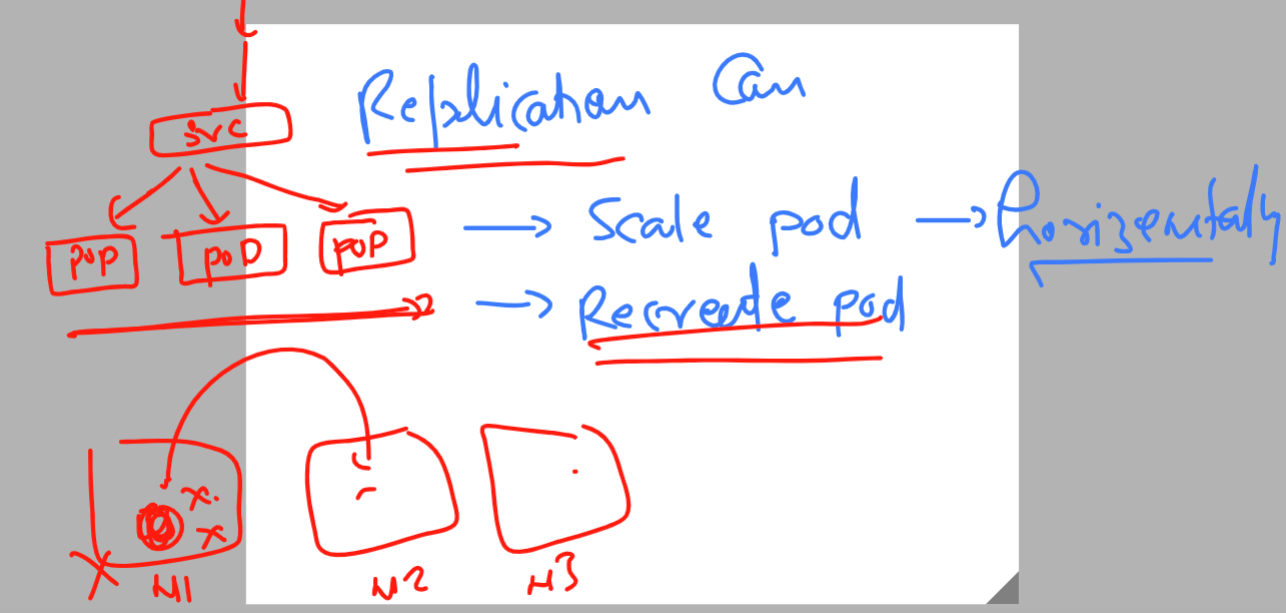 Replication Can
svc
pop poD poP
→ Scale pod → horizentally
→ Recreate pod
x.
x
N1 N2 N3